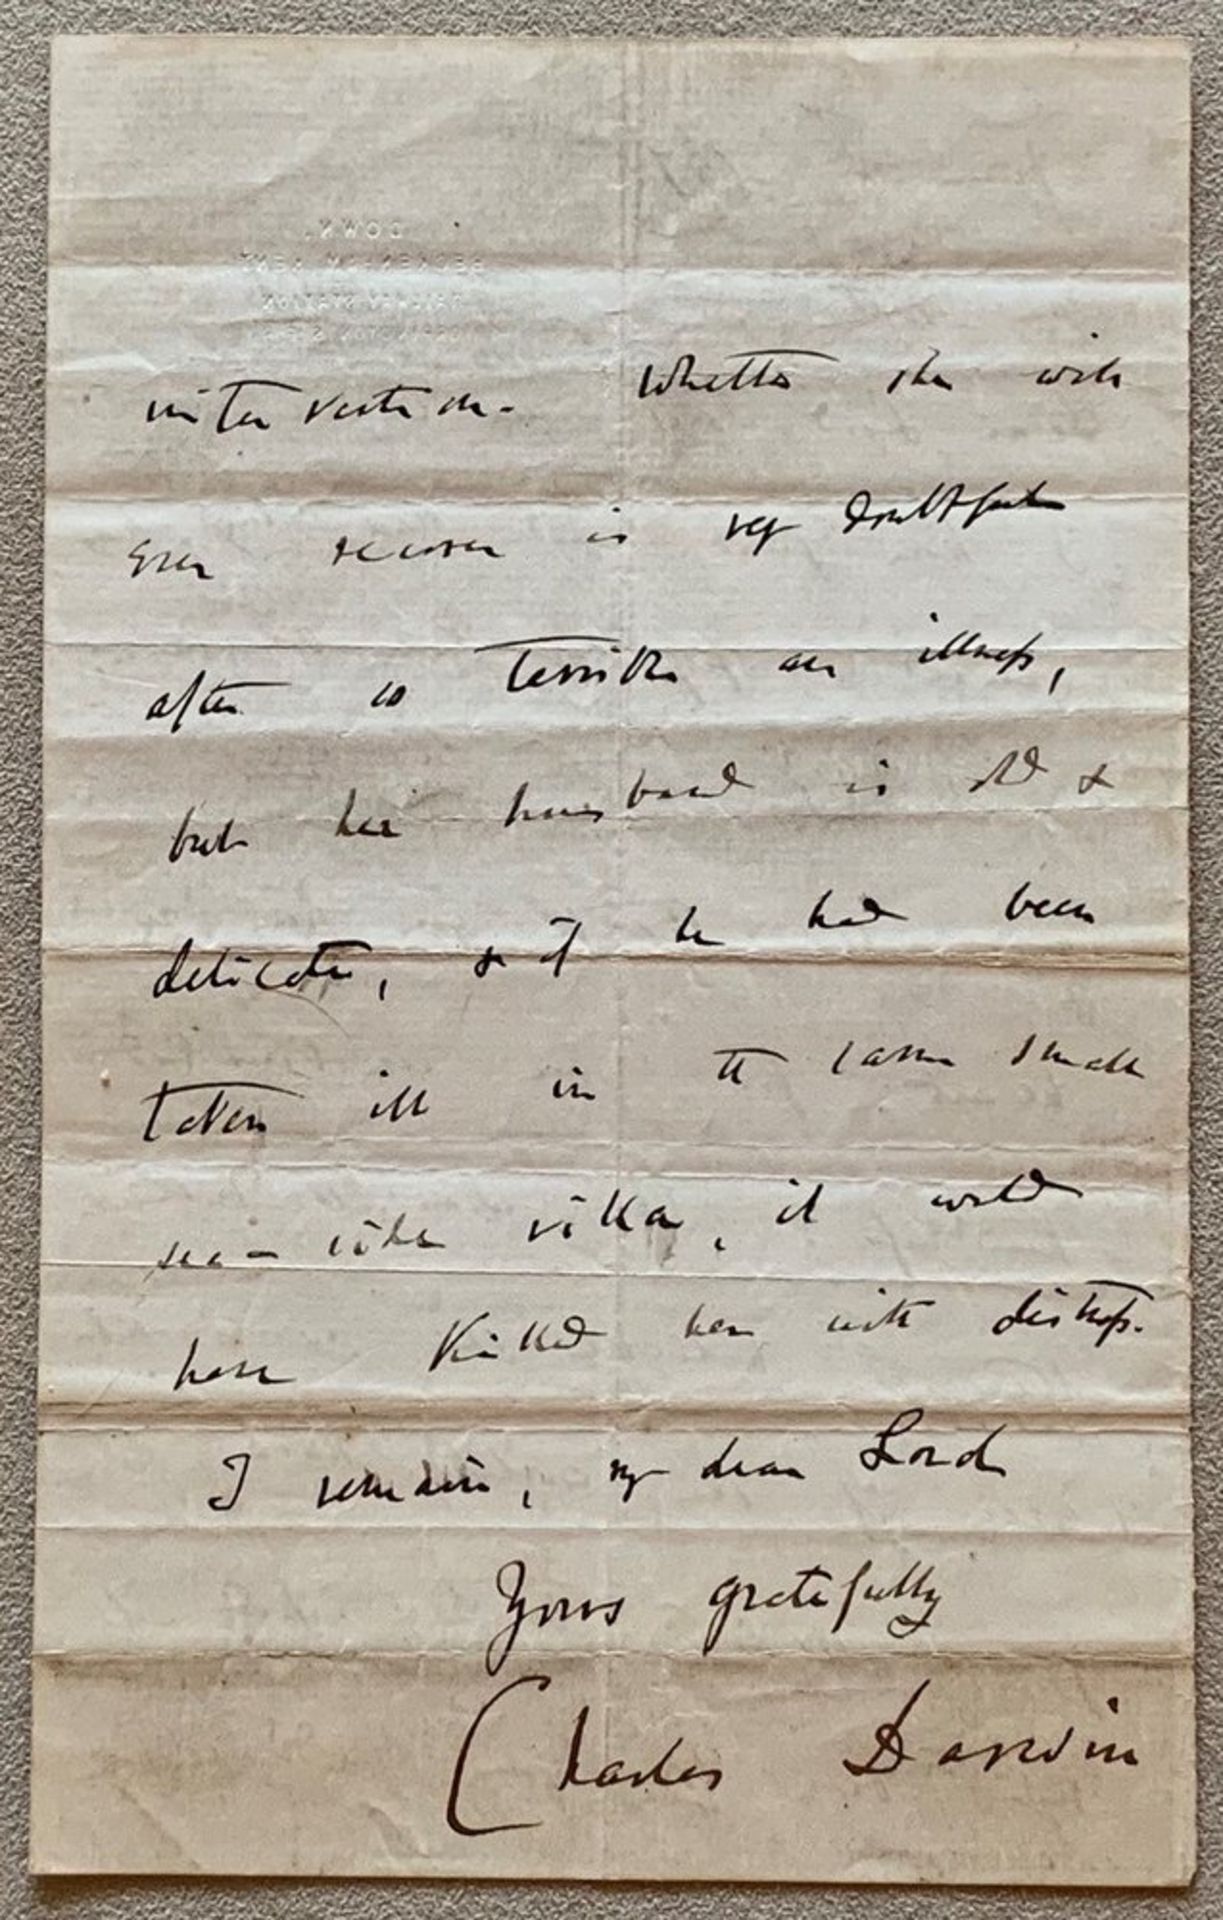 DOWN.
BECKENHAM, KENT.
RAILWAY STATION
ORPINGTON. S.E.R.
intervention. Whether she will
ever recover is very doubtful
after so terrible an illness,
but her husband is old &
delicate, & if he had been
taken ill in the same small
sea-side villa, it would
have killed her with distress.
I remain, my dear Lord
Yours gratefully
Charles Darwin